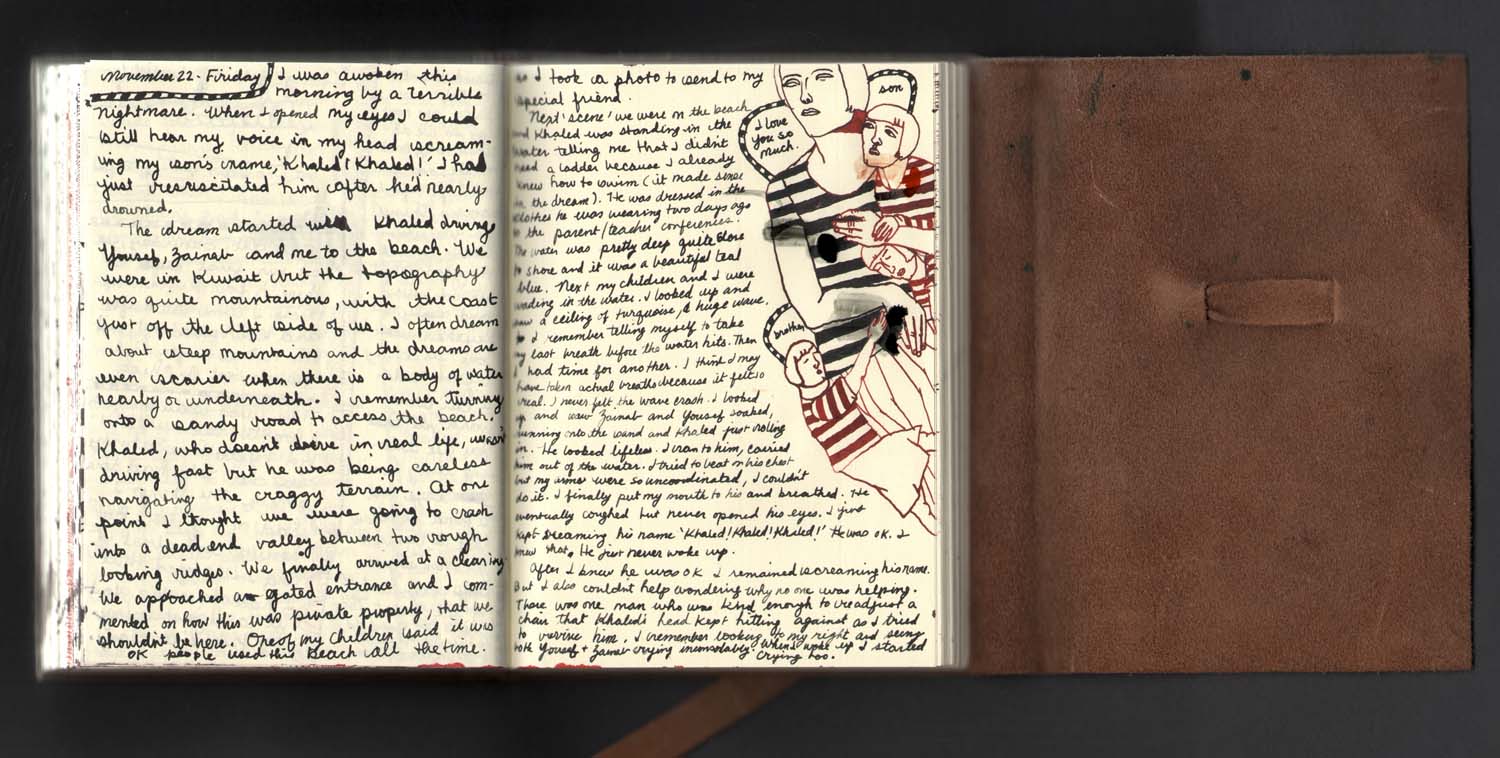 November 22 - Firiday I was awoken this
morning by a terrible
nightmare. When I opened my eyes I could
still hear my voice in my head scream-
ing my son's name, 'Khaled! Khaled!' I had
just resuscitated him after he'd nearly
drowned.
The dream started with Khaled driving
Yousef, Zainab and me to the beach. We
were in Kuwait but the topography
was quite mountainous, with the coast
just off the left side of us. I often dream
about steep mountains and the dreams are
even scarier when there is a body of water
nearby or underneath. I remember turning
onto a sandy road to access the beach.
Khaled, who doesn't drive in real life, wasn't
driving fast but he was being careless
navigating the craggy terrain. At one
point I thought we were going to crash
into a dead end valley between two rough
looking ridges. We finally arrived at a clearing
We approached a gated entrance and I com-
mented on how this was private property, that we
shouldn't be here. One of my children said it was
OK people used this beach all the time.
I took a photo to send to my
special friend.
Next 'scene' we were on the beach
and Khaled was standing in the
water telling me that I didn't
need a ladder because I already
knew how to swim (it made sense
in the dream). He was dressed in the
clothes he was wearing two days ago
to the parent/teacher conferences.
The water was pretty deep quite close
to shore and it was a beautiful teal
blue. Next my children and I were
wading in the water. I looked up and
saw a ceiling of turquoise, a huge wave.
I remember telling myself to take
my last breath before the water hits. Then
I had time for another. I think I may
have taken actual breaths because it felt so
real. I never felt the wave crash. I looked
up and saw Zainab and Yousef soaked,
running onto the sand and Khaled just rolling
in. He looked lifeless. I ran to him, carried
him out of the water. I tried to beat on his chest
but my arms were so uncoordinated, I couldn't
do it. I finally put my mouth to his and breathed. He
eventually coughed but never opened his eyes. I just
kept screaming his name 'Khaled! Khaled! Khaled!' He was ok. I
knew that. He just never woke up.
After I knew he was OK I remained screaming his name.
But I also couldn't help wondering why no one was helping.
There was one man who was kind enough to readjust a
chair that Khaled's head kept hitting against as I tried
to revive him. I remember looking to my right and seeing
both Yousef + Zainab crying inconsolably. When I woke up I started
crying too.
son
I love
you so
much.
brother